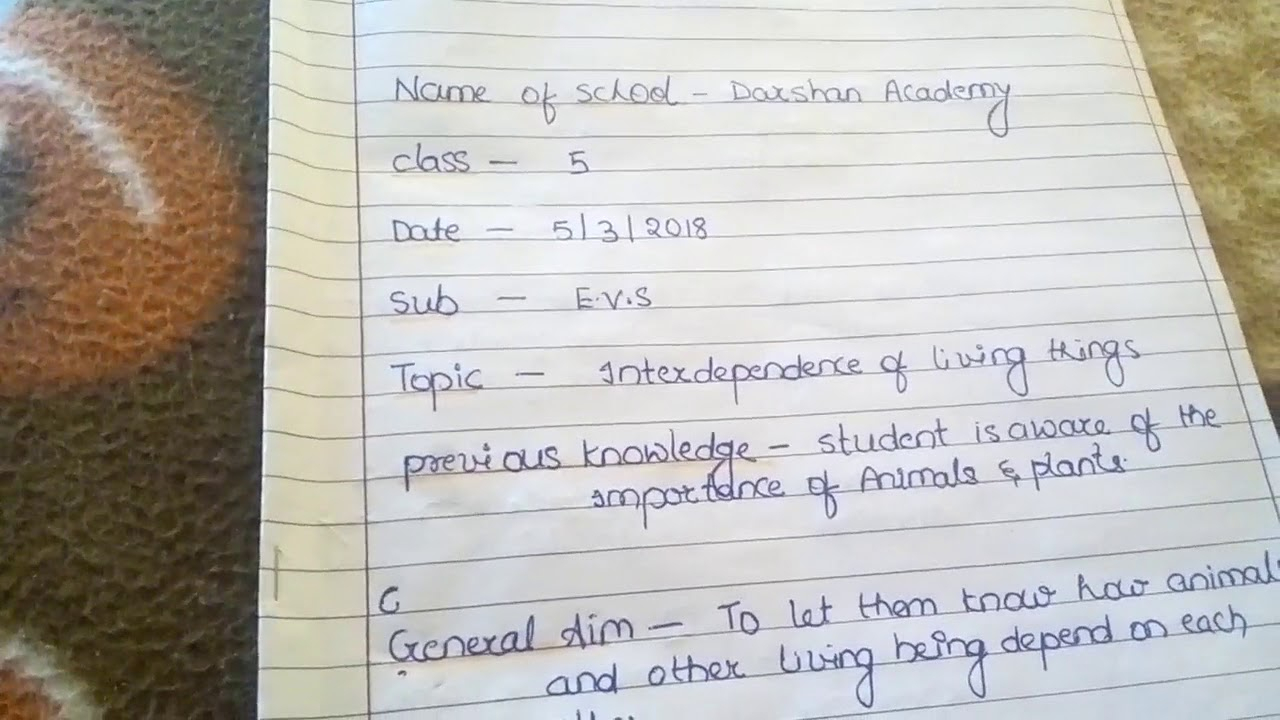 Name of school - Darshan Academy
class - 5
Date - 5/3/2018
Sub - E.V.S
Topic - Interdependence of living things
previous knowledge - student is aware of the
importance of Animals & plants.
G
General Aim - To let them know how animals
and other living being depend on each